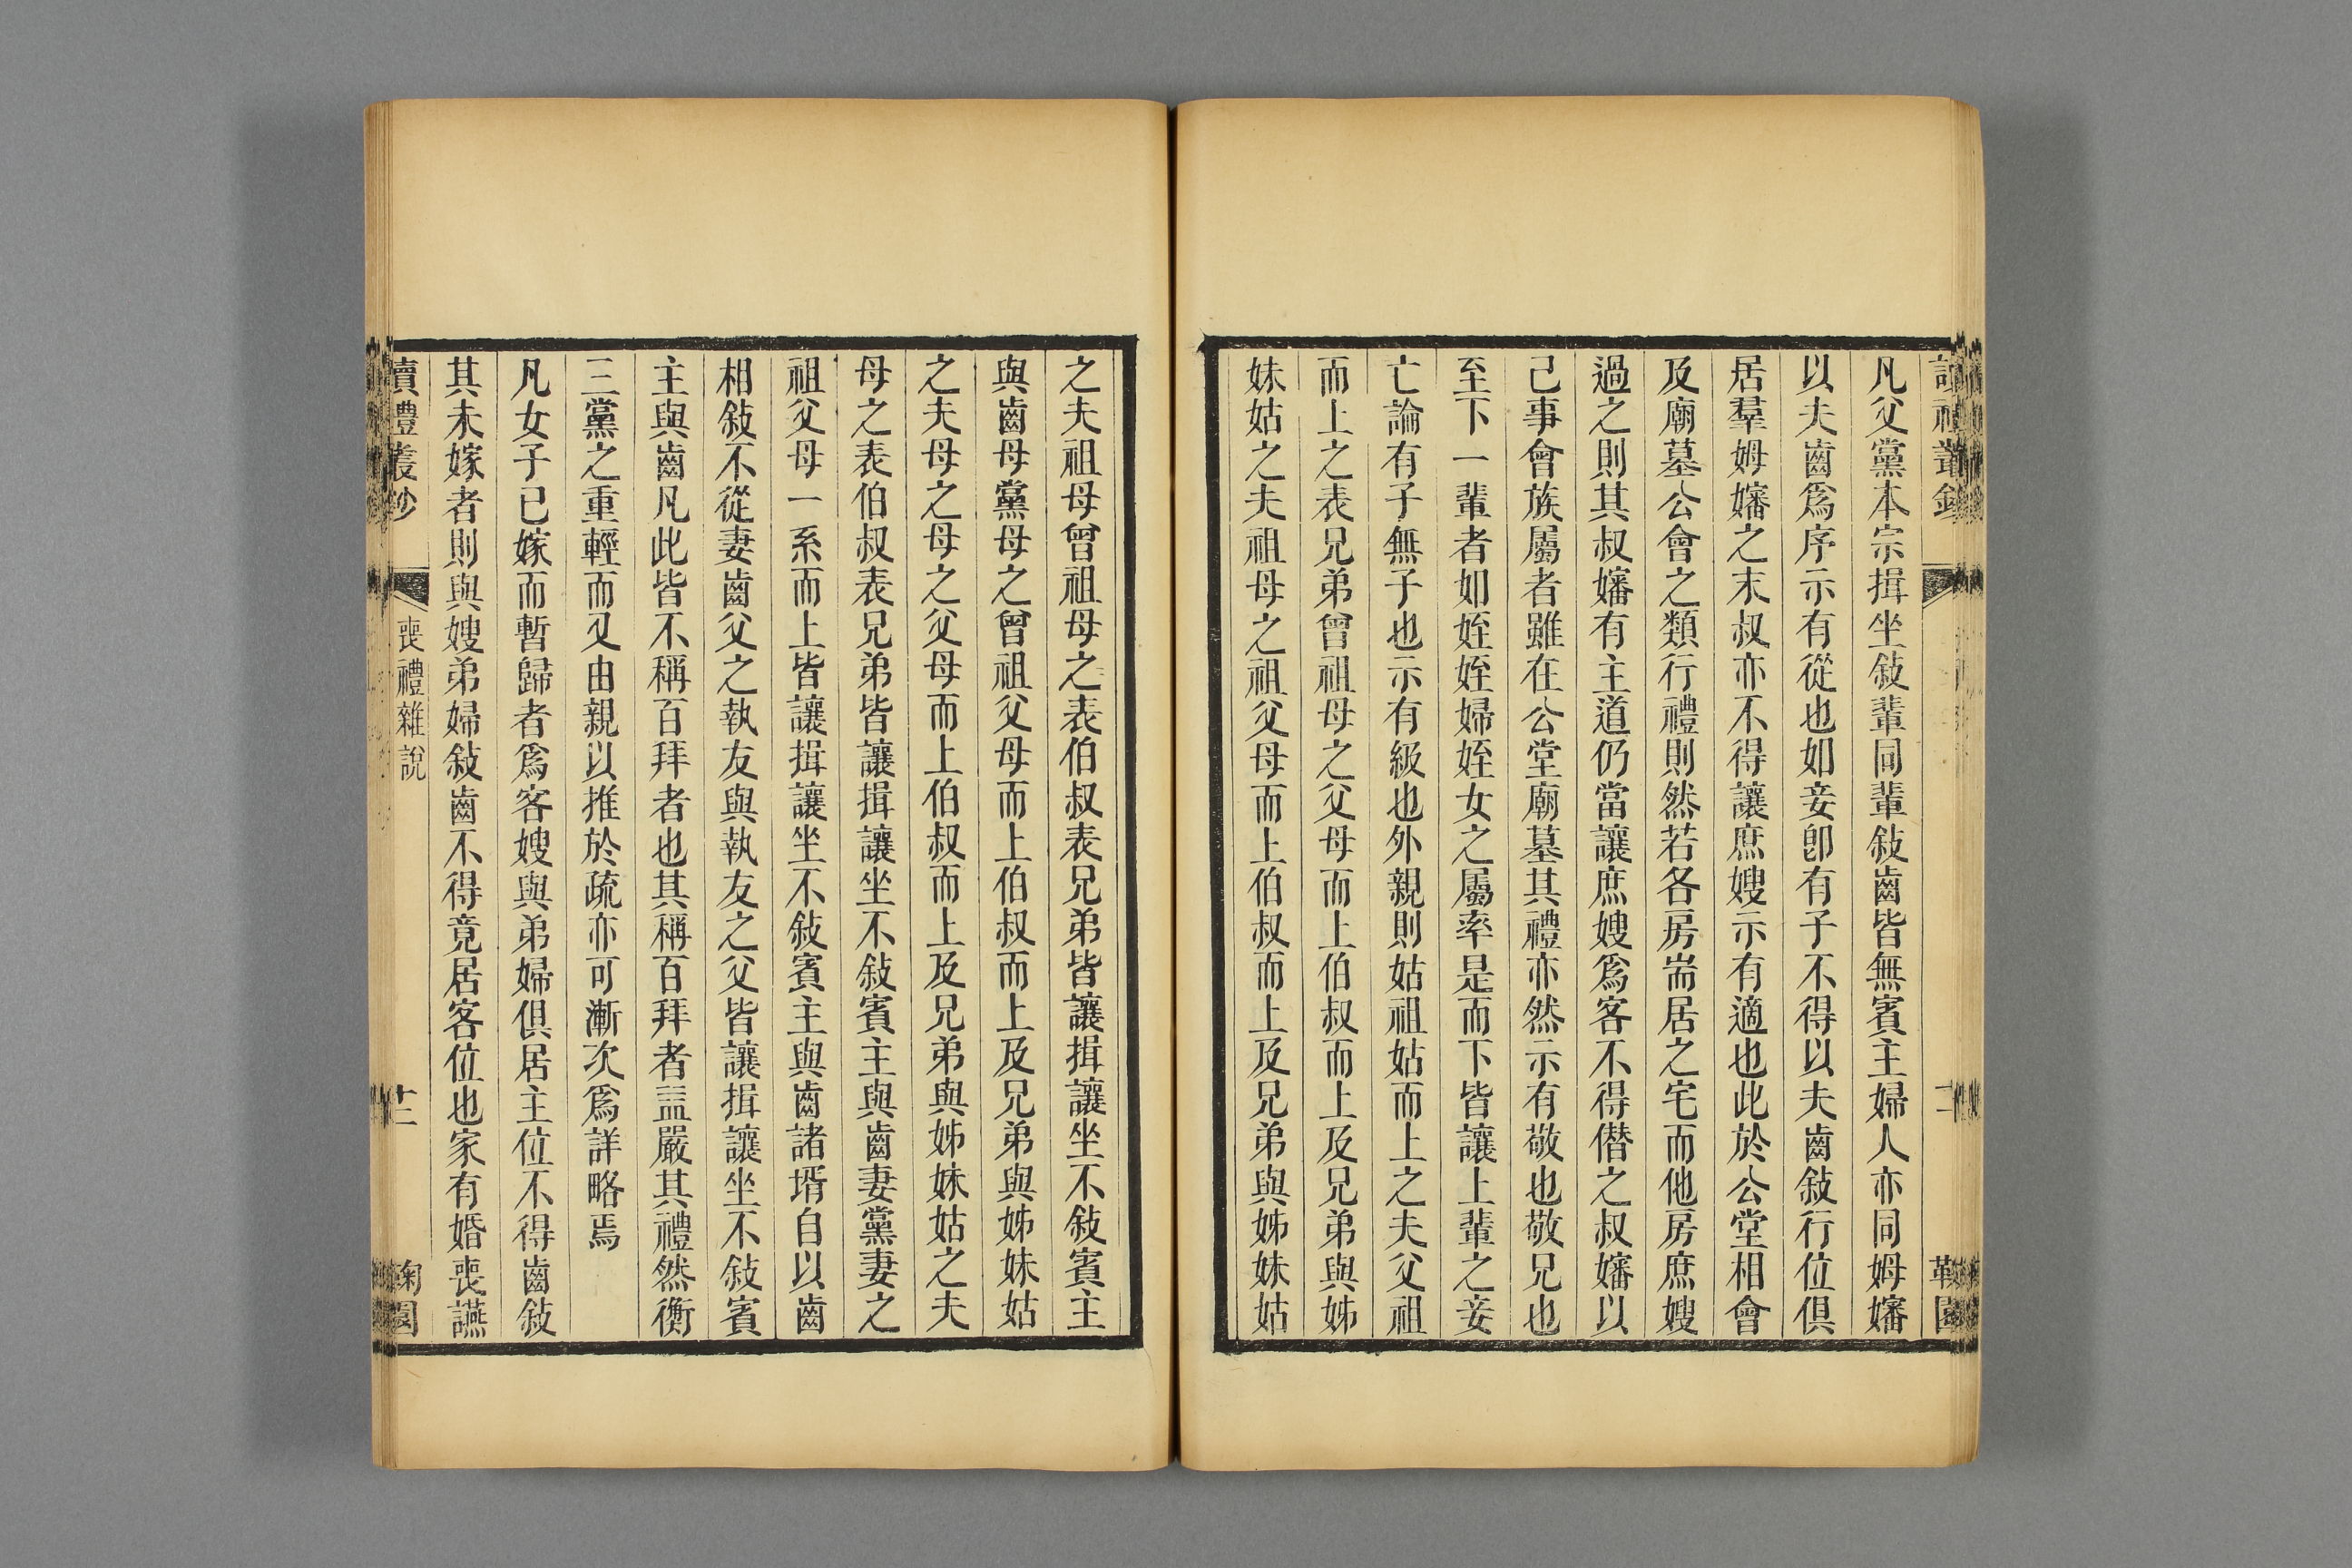 凡父黨本宗揖坐敍輩同輩敍齒皆無賓主婦人亦同姆嬸
以夫齒爲序示有從也如妾卽有子不得以夫齒敍行位俱
居羣姆嬸之末叔亦不得讓庶嫂示有適也此於公堂相會
及廟墓公會之類行禮則然若各房耑居之宅而他房庶嫂
過之則其叔嬸有主道仍當讓庶嫂爲客不得僭之叔嬸以
己事會族屬者雖在公堂廟墓其禮亦然示有敬也敬兄也
至下一輩者如姪姪婦姪女之屬率是而下皆讓上輩之妾
亡論有子無子也示有級也外親則姑祖姑而上之夫父祖
而上之表兄弟曾祖母之父母而上伯叔而上及兄弟與姊
妹姑之夫祖母之祖父母而上伯叔而上及兄弟與姊妹姑
之夫祖母曾祖母之表伯叔表兄弟皆讓揖讓坐不敍賓主
與齒母黨母之曾祖父母而上伯叔而上及兄弟與姊妹姑
之夫母之母之父母而上伯叔而上及兄弟與姊妹姑之夫
母之表伯叔表兄弟皆讓揖讓坐不敍賓主與齒妻黨妻之
祖父母一系而上皆讓揖讓坐不敍賓主與齒諸壻自以齒
相敍不從妻齒父之執友與執友之父皆讓揖讓坐不敍賓
主與齒凡此皆不稱百拜者也其稱百拜者盖嚴其禮然衡
三黨之重輕而又由親以推於疏亦可漸次爲詳略焉
凡女子已嫁而暫歸者爲客嫂與弟婦俱居主位不得齒敍
其未嫁者則與嫂弟婦敍齒不得竟居客位也家有婚喪讌
讀禮叢鈔
喪禮雜說
鞠園